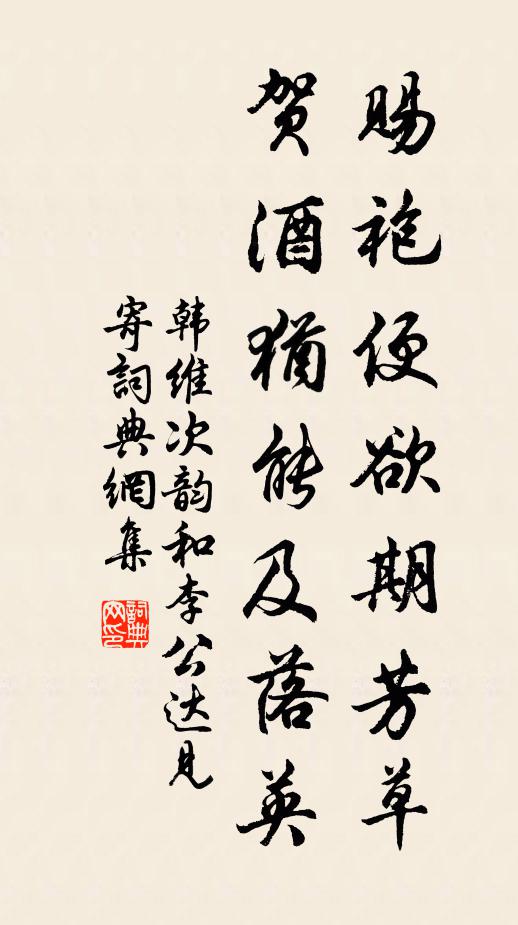 赐袍便欲期芳草
贺酒猶能及落英
韩维次韵和李公达见
寄詞典網集
詞典网印